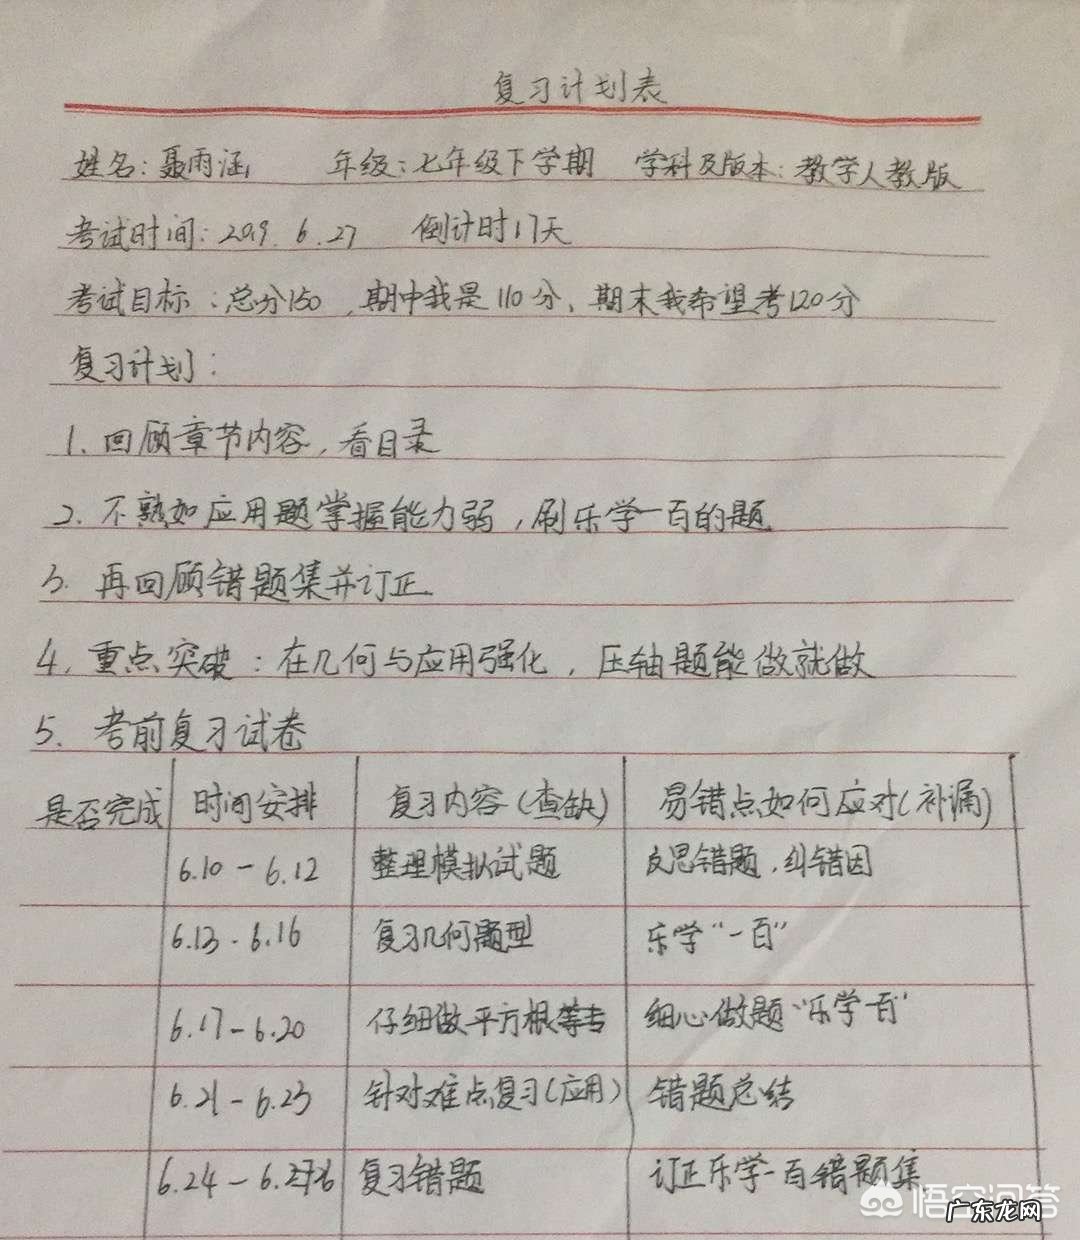 复习计划表
姓名：聂雨涵 年级：七年级下学期 学科及版本：教学人教版
考试时间：2019.6.27 倒计时17天
考试目标：总分150，期中我是110分、期末我希望考120分
复习计划：
1. 回顾章节内容，看目录
2. 不熟如应用题掌握能力弱，刷乐学一百的题
3. 再回顾错题集并订正
4. 重点突破：在几何与应用强化，压轴题能做就做
5. 考前复习试卷
是否完成 时间安排 复习内容（查缺） 易错点如何应对（补漏）
6.10－6.12 整理模拟试题 反思错题，纠错因
6.13－6.16 复习几何题型 乐学“一百”
6.17－6.20 仔细做平方根等专 细心做题“乐学一百”
6.21－6.23 针对难点复习（应用） 错题总结
6.24－6.26 复习错题 订正乐学一百错题集
悟空问答
广东龙网